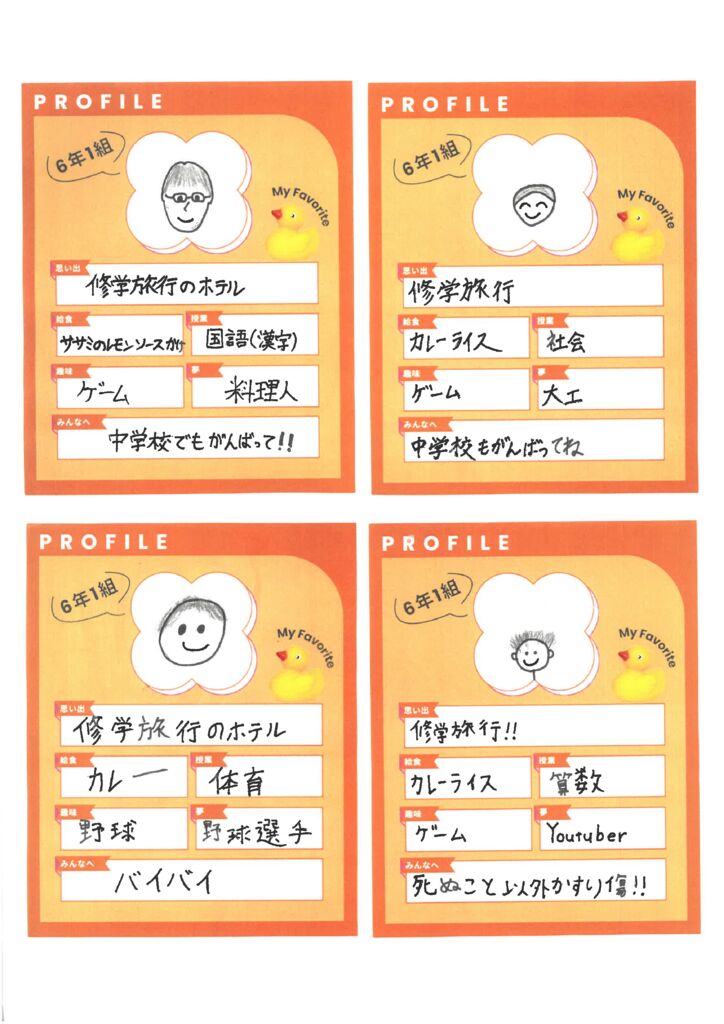 PROFILE
6年1組
My Favorite
思い出
修学旅行のホテル
給食
ササミのレモンソースがけ
授業
国語(漢字)
趣味
ゲーム
夢
料理人
みんなへ
中学校でもがんばって!!
PROFILE
6年1組
My Favorite
思い出
修学旅行
給食
カレーライス
授業
社会
趣味
ゲーム
夢
大工
みんなへ
中学校もがんばってね
PROFILE
6年1組
My Favorite
思い出
修学旅行のホテル
給食
カレー
授業
体育
趣味
野球
夢
野球選手
みんなへ
バイバイ
PROFILE
6年1組
My Favorite
思い出
修学旅行!!
給食
カレーライス
授業
算数
趣味
ゲーム
夢
Youtuber
みんなへ
死ぬこと以外かすり傷!!